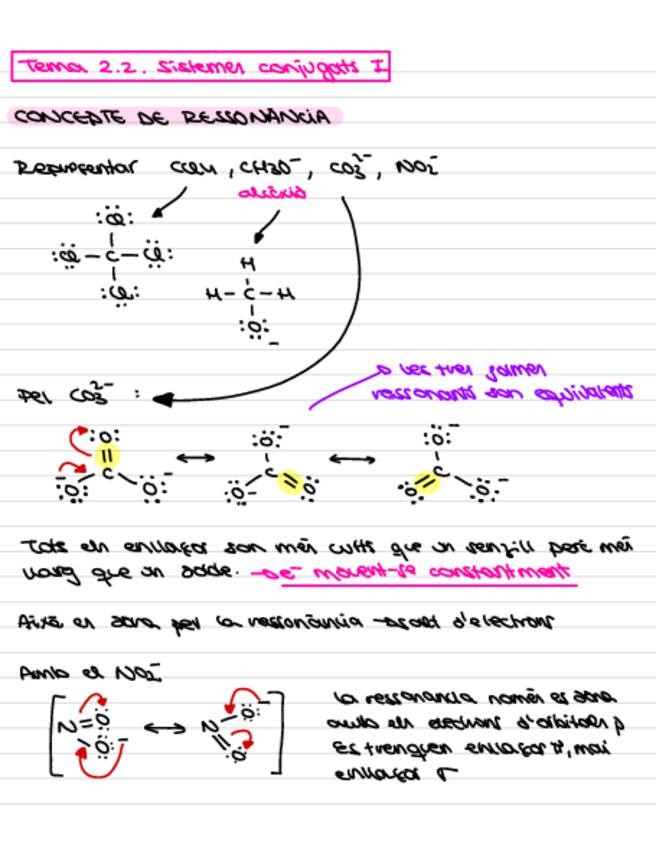 Tema 2.2. Sistemes conjugats I
CONCEPTE DE RESSONÀNCIA
Representar CCl4, CH3O⁻, CO3²⁻, NO2⁻
alcòxid
:Cl:
:Cl – C – Cl:
:Cl:
H
H – C – H
:O:⁻
→ les tres formes
ressonants són equivalents
Pel CO3²⁻ :
:O: ↔ :O:⁻ ↔ :O:⁻
C C C
⁻:O: :O:⁻ :O:⁻ :O: :O: :O:⁻
Tots els enllaços són més curts que un senzill però més
llarg que un doble. → e⁻ movent-se constantment
Això es dona per la ressonància → salt d'electrons
Amb el NO2⁻
[ N = O: O:⁻ ↔ N – O:⁻ = O: ]
la ressonancia només es dona
amb els electrons d'orbitals p
Es trenquen enllaços π, mai
enllaços σ